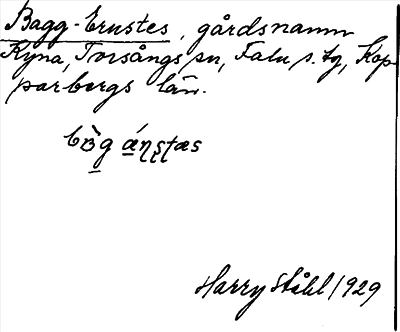 Bagg-Ernstes, gårdsnamn
Ryna, Torsångs sn, Falu s. tg, Kop-
parbergs län.
Harry Ståhl 1929